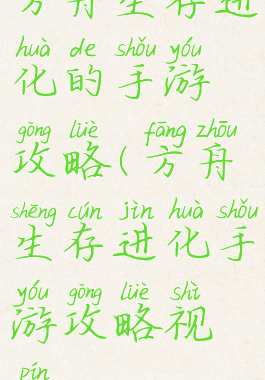 方舟生存进
huà de shǒu yóu
化的手游
gōng lüè fāng zhōu
攻略(方舟
shēng cún jìn huà shǒu
生存进化手
yóu gōng lüè shì
游攻略视
pín